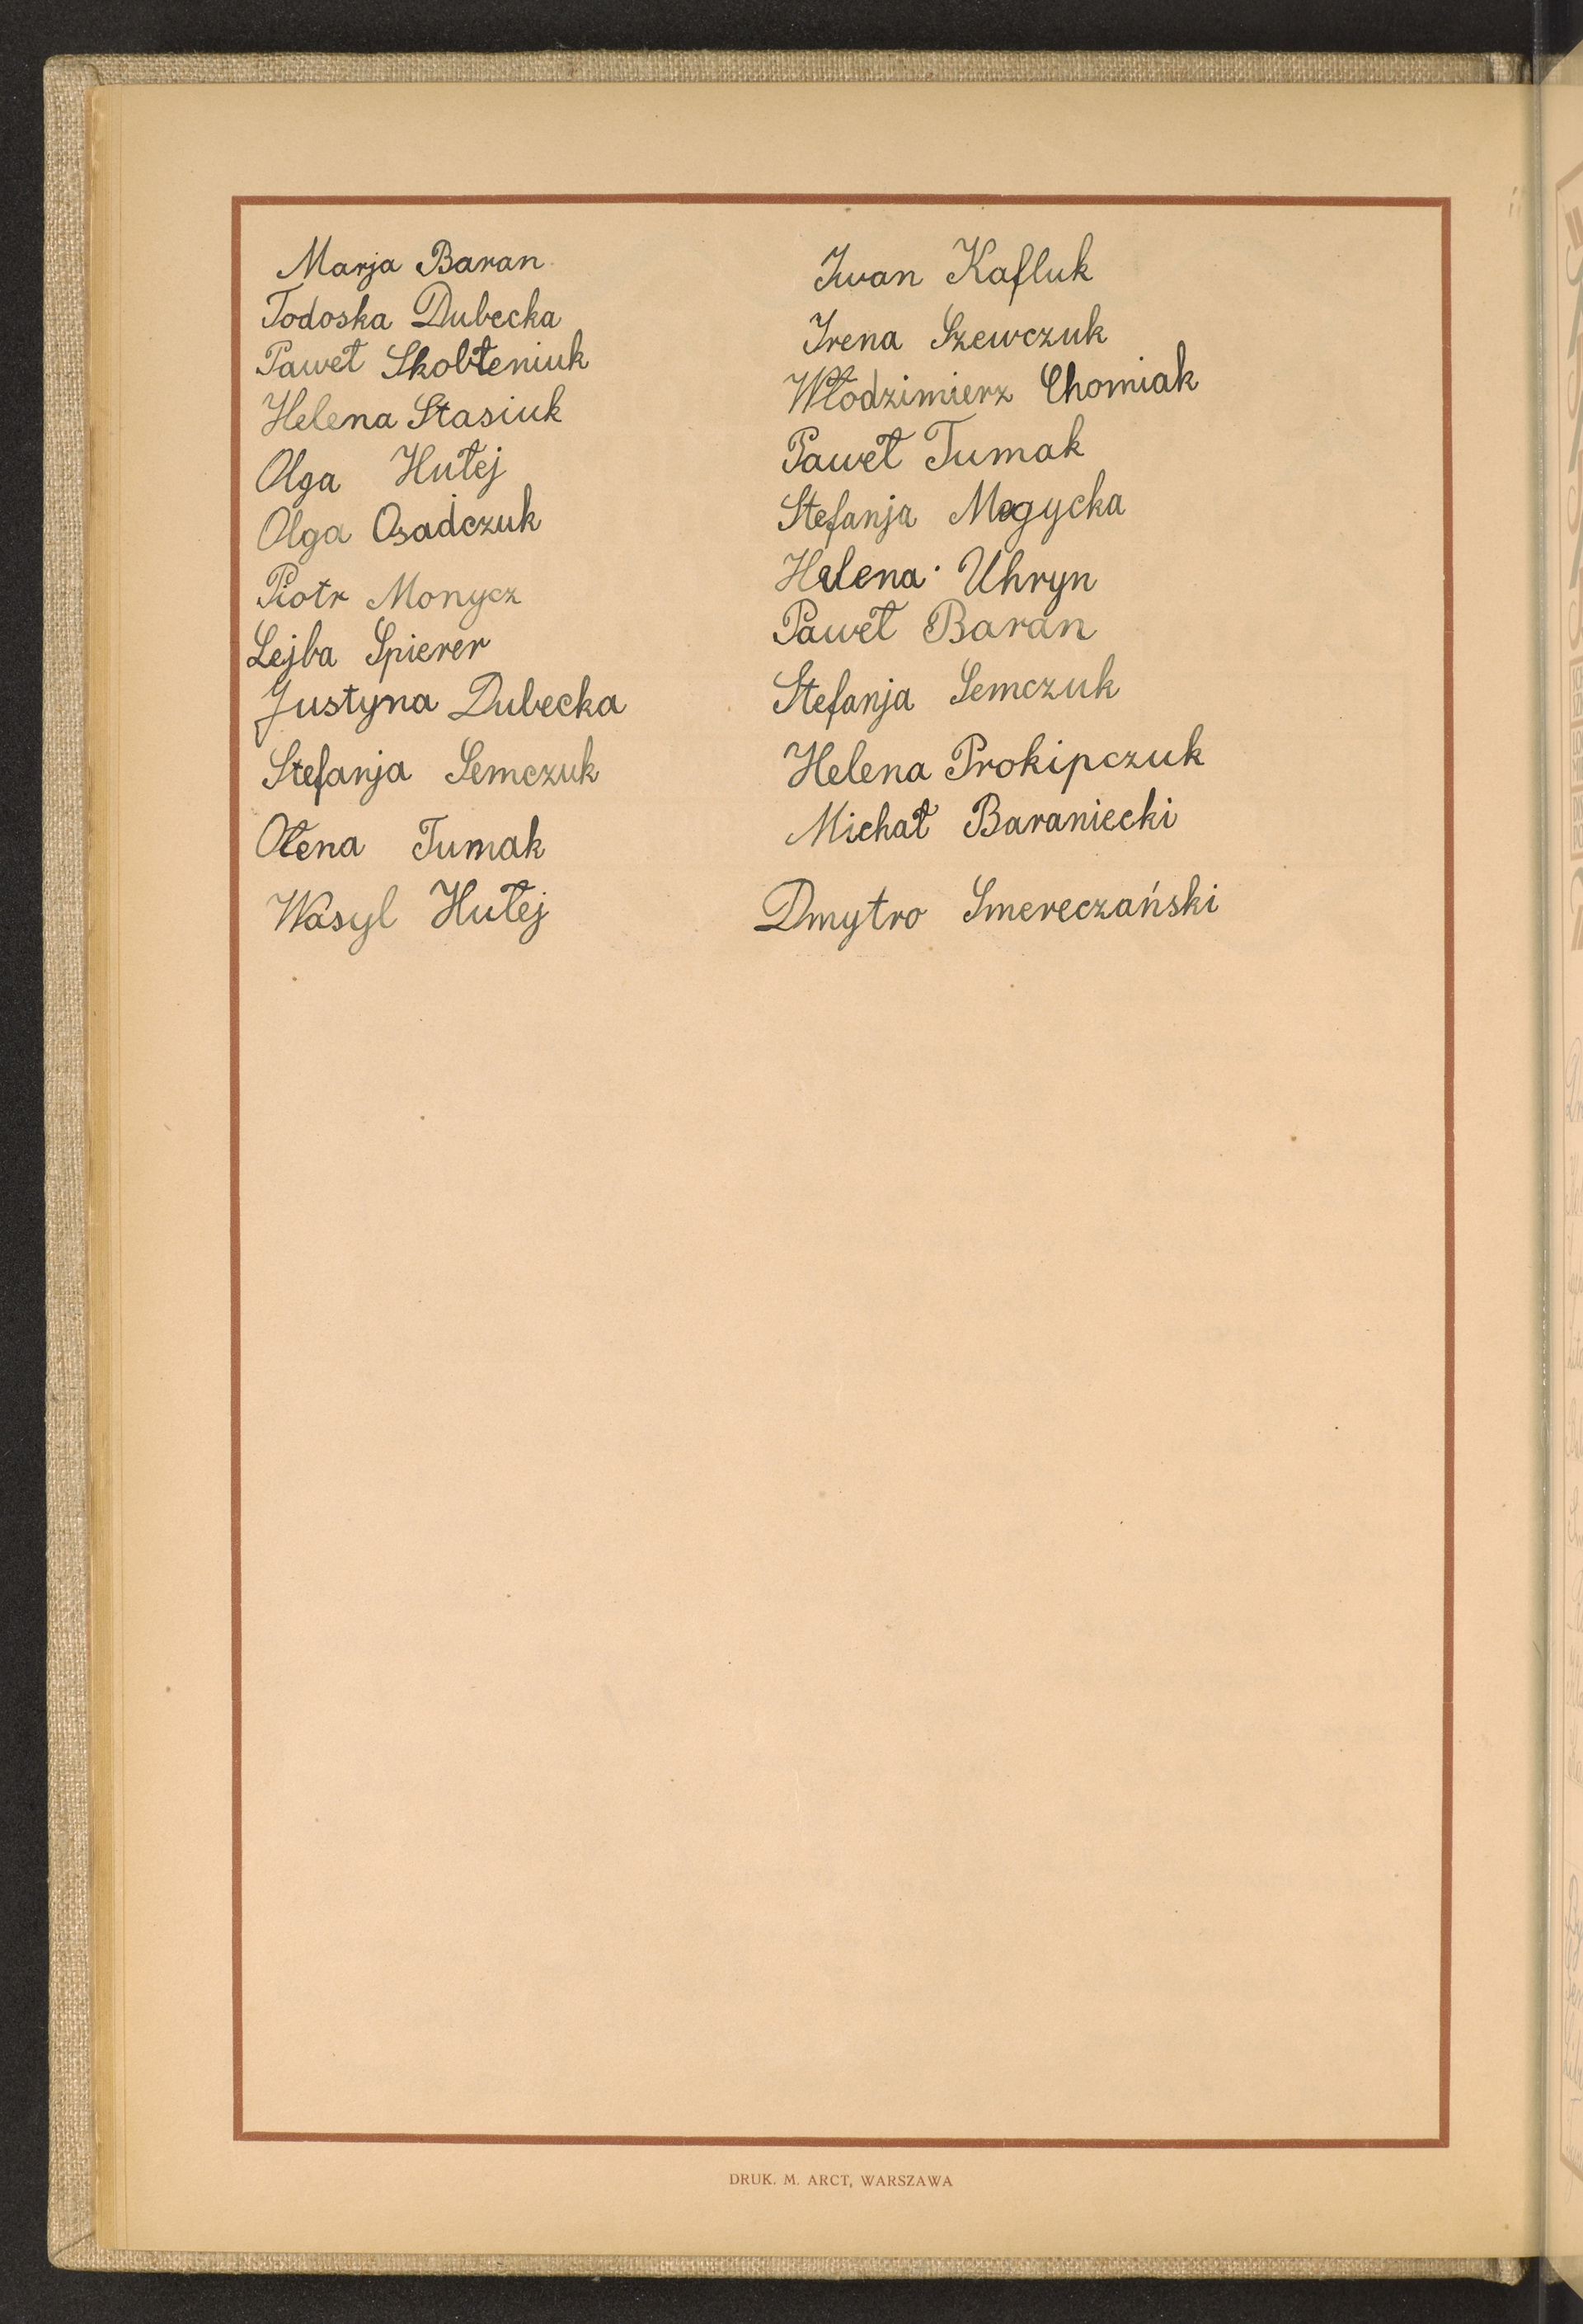 Marja Baran
Todoska Dubecka
Paweł Skobłeniuk
Helena Stasiuk
Olga Hułej
Olga Osadczuk
Piotr Monycz
Lejba Spierer
Justyna Dubecka
Stefanja Semczuk
Ołena Tumak
Wasyl Hułej
Iwan Kafluk
Irena Szewczuk
Włodzimierz Chomiak
Paweł Tumak
Stefanja Magycka
Helena Uhryn
Paweł Baran
Stefanja Semczuk
Helena Prokipczuk
Michał Baraniecki
Dmytro Smereczański
DRUK. M. ARCT, WARSZAWA